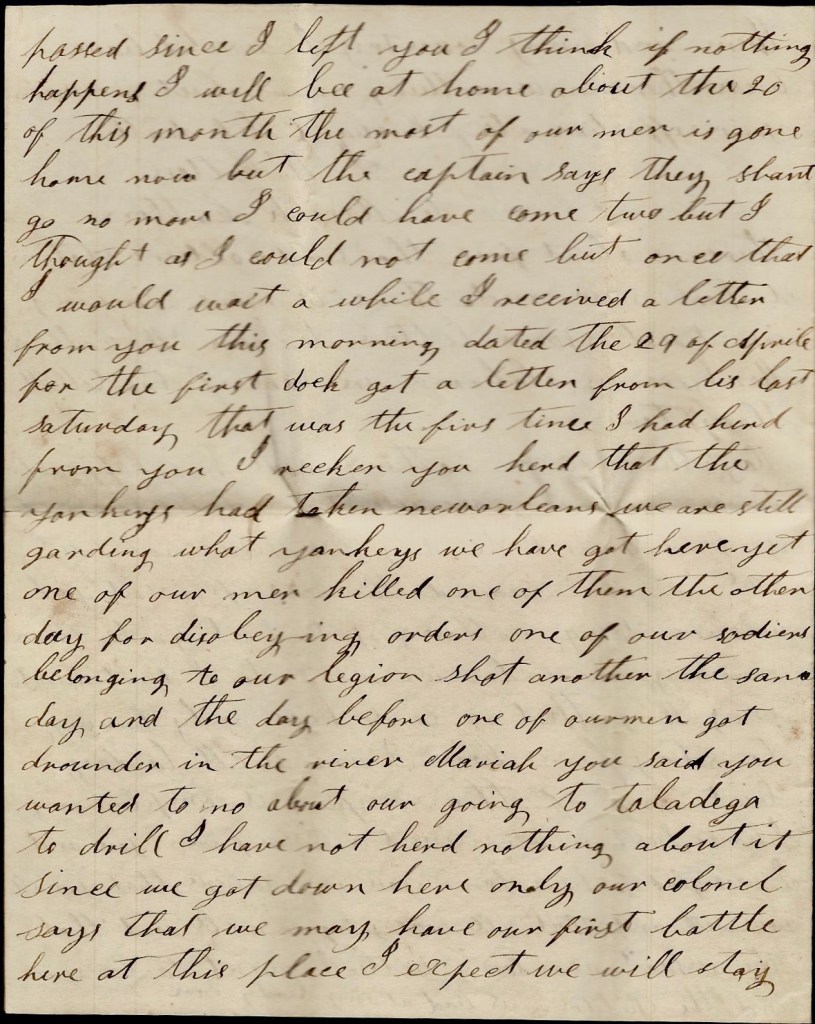 passed since I left you I think if nothing
happens I will bee at home about the 20
of this month the most of our men is gone
home now but the captain says they shant
go no more I could have come two but I
thought as I could not come but once that
I would wait a while I received a letter
from you this morning dated the 29 of Aprile
for the first dock got a letter from lis last
saturday that was the firs time I had herd
from you I recken you herd that the
yankeys had taken neworleans we are still
garding what yankeys we have got here yet
one of our men killed one of them the other
day for disobey-ing orders one of our sodiers
belonging to our legion shot another the same
day and the day before one of our men got
drounder in the river Mariah you said you
wanted to no about our going to taladega
to drill I have not herd nothing about it
since we got down here only our colonel
says that we may have our first battle
here at this place I expect we will stay